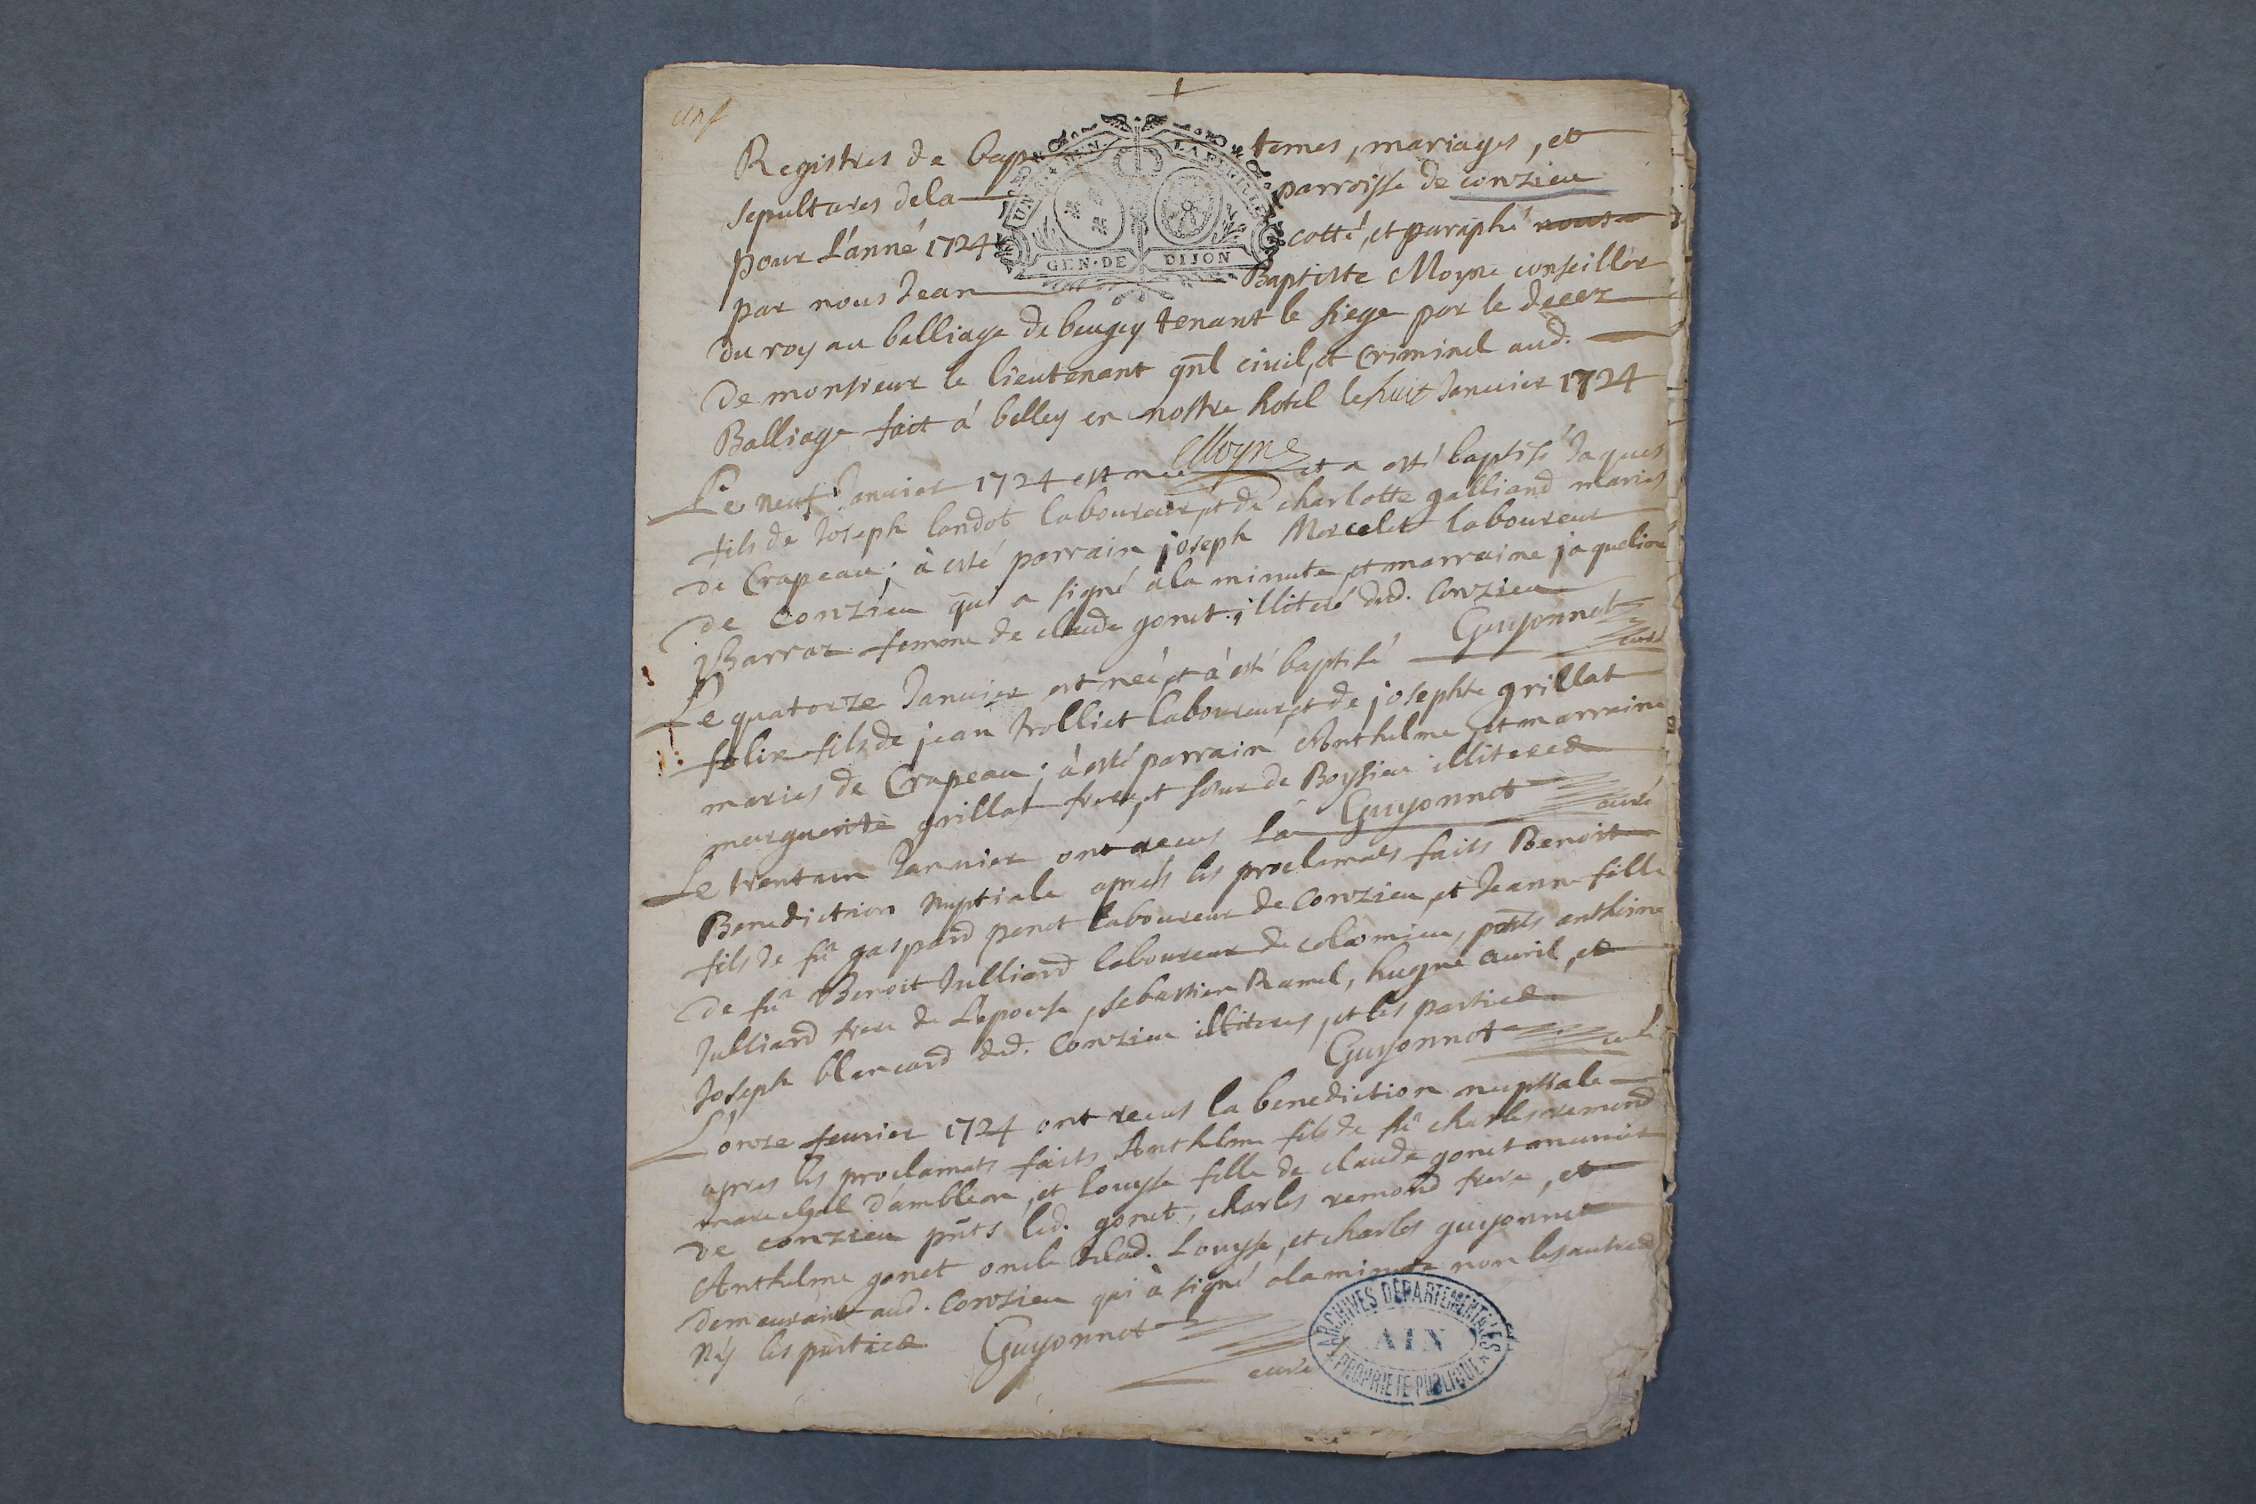 unf
Registres de baptemes, mariages, et
UN S. 4 DEN. LA FEUILLE
GEN. DE DIJON
sepultures dela parroisse de conzieu
pour L'anné 1724 cotté, et paraphé nous
par nous Jean Baptiste Moyne conseiller
du roy au balliage de beugey tenant le siege par le decez
de monsieur le lieutenant gnl civil, et Criminel aud.
Balliage fait á belley en nostre hotel le huit Janvier 1724
Moyne
Le neuf Janvier 1724 est né et a esté baptisé Jaques
fils de Joseph landot laboureur, et de charlotte galliand mariés
de Crapeau; à esté parrain joseph Marcelet laboureur
de Conzieu qui a signé a la minute, et marraine jaqueline
Barraz femme de claude gonet; illiteré dud. Conzieu
Guyonnet curé
Le quatorze Janvier est né, et à esté baptisé
felix fils de jean trolliet laboureur, et de josephte grillat
mariés de Crapeau; à esté parrain Anthelme, et marraine
marguerite grillat frere, et soeur de Boyssieu illiterez
Guyonnet curé
Le trentaun Janvier ont recus La
Benediction nuptiale aprés les proclamats faits Benoit
fils de fû gaspard penet laboureur de Conzieu, et Jeanne fille
de fû Benoit Julliard laboureur de colomieu, pnts anthelme
Julliard frere de L'epouse, sebastien Ramel, hugue avril, et
Joseph blancard dud. Conzieu illiteres, et les parties
Guyonnet curé
L'onze fevrier 1724 ont recus la benediction nuptiale
apres les proclamats faits Anthelme fils de fû charles remond
marechal d'ambleon, et Louyse fille de claude gonet munier
de conzieu pnts led. gonet, charles remond frere, et
Anthelme gonet oncle delad. Louyse, et charles guyonnet
demeurant aud. Conzieu qui à signé alaminute non les autres
ny les parties Guyonnet
curé
ARCHIVES DÉPARTEMENTALES
AIN
PROPRIÉTÉ PUBLIQUE